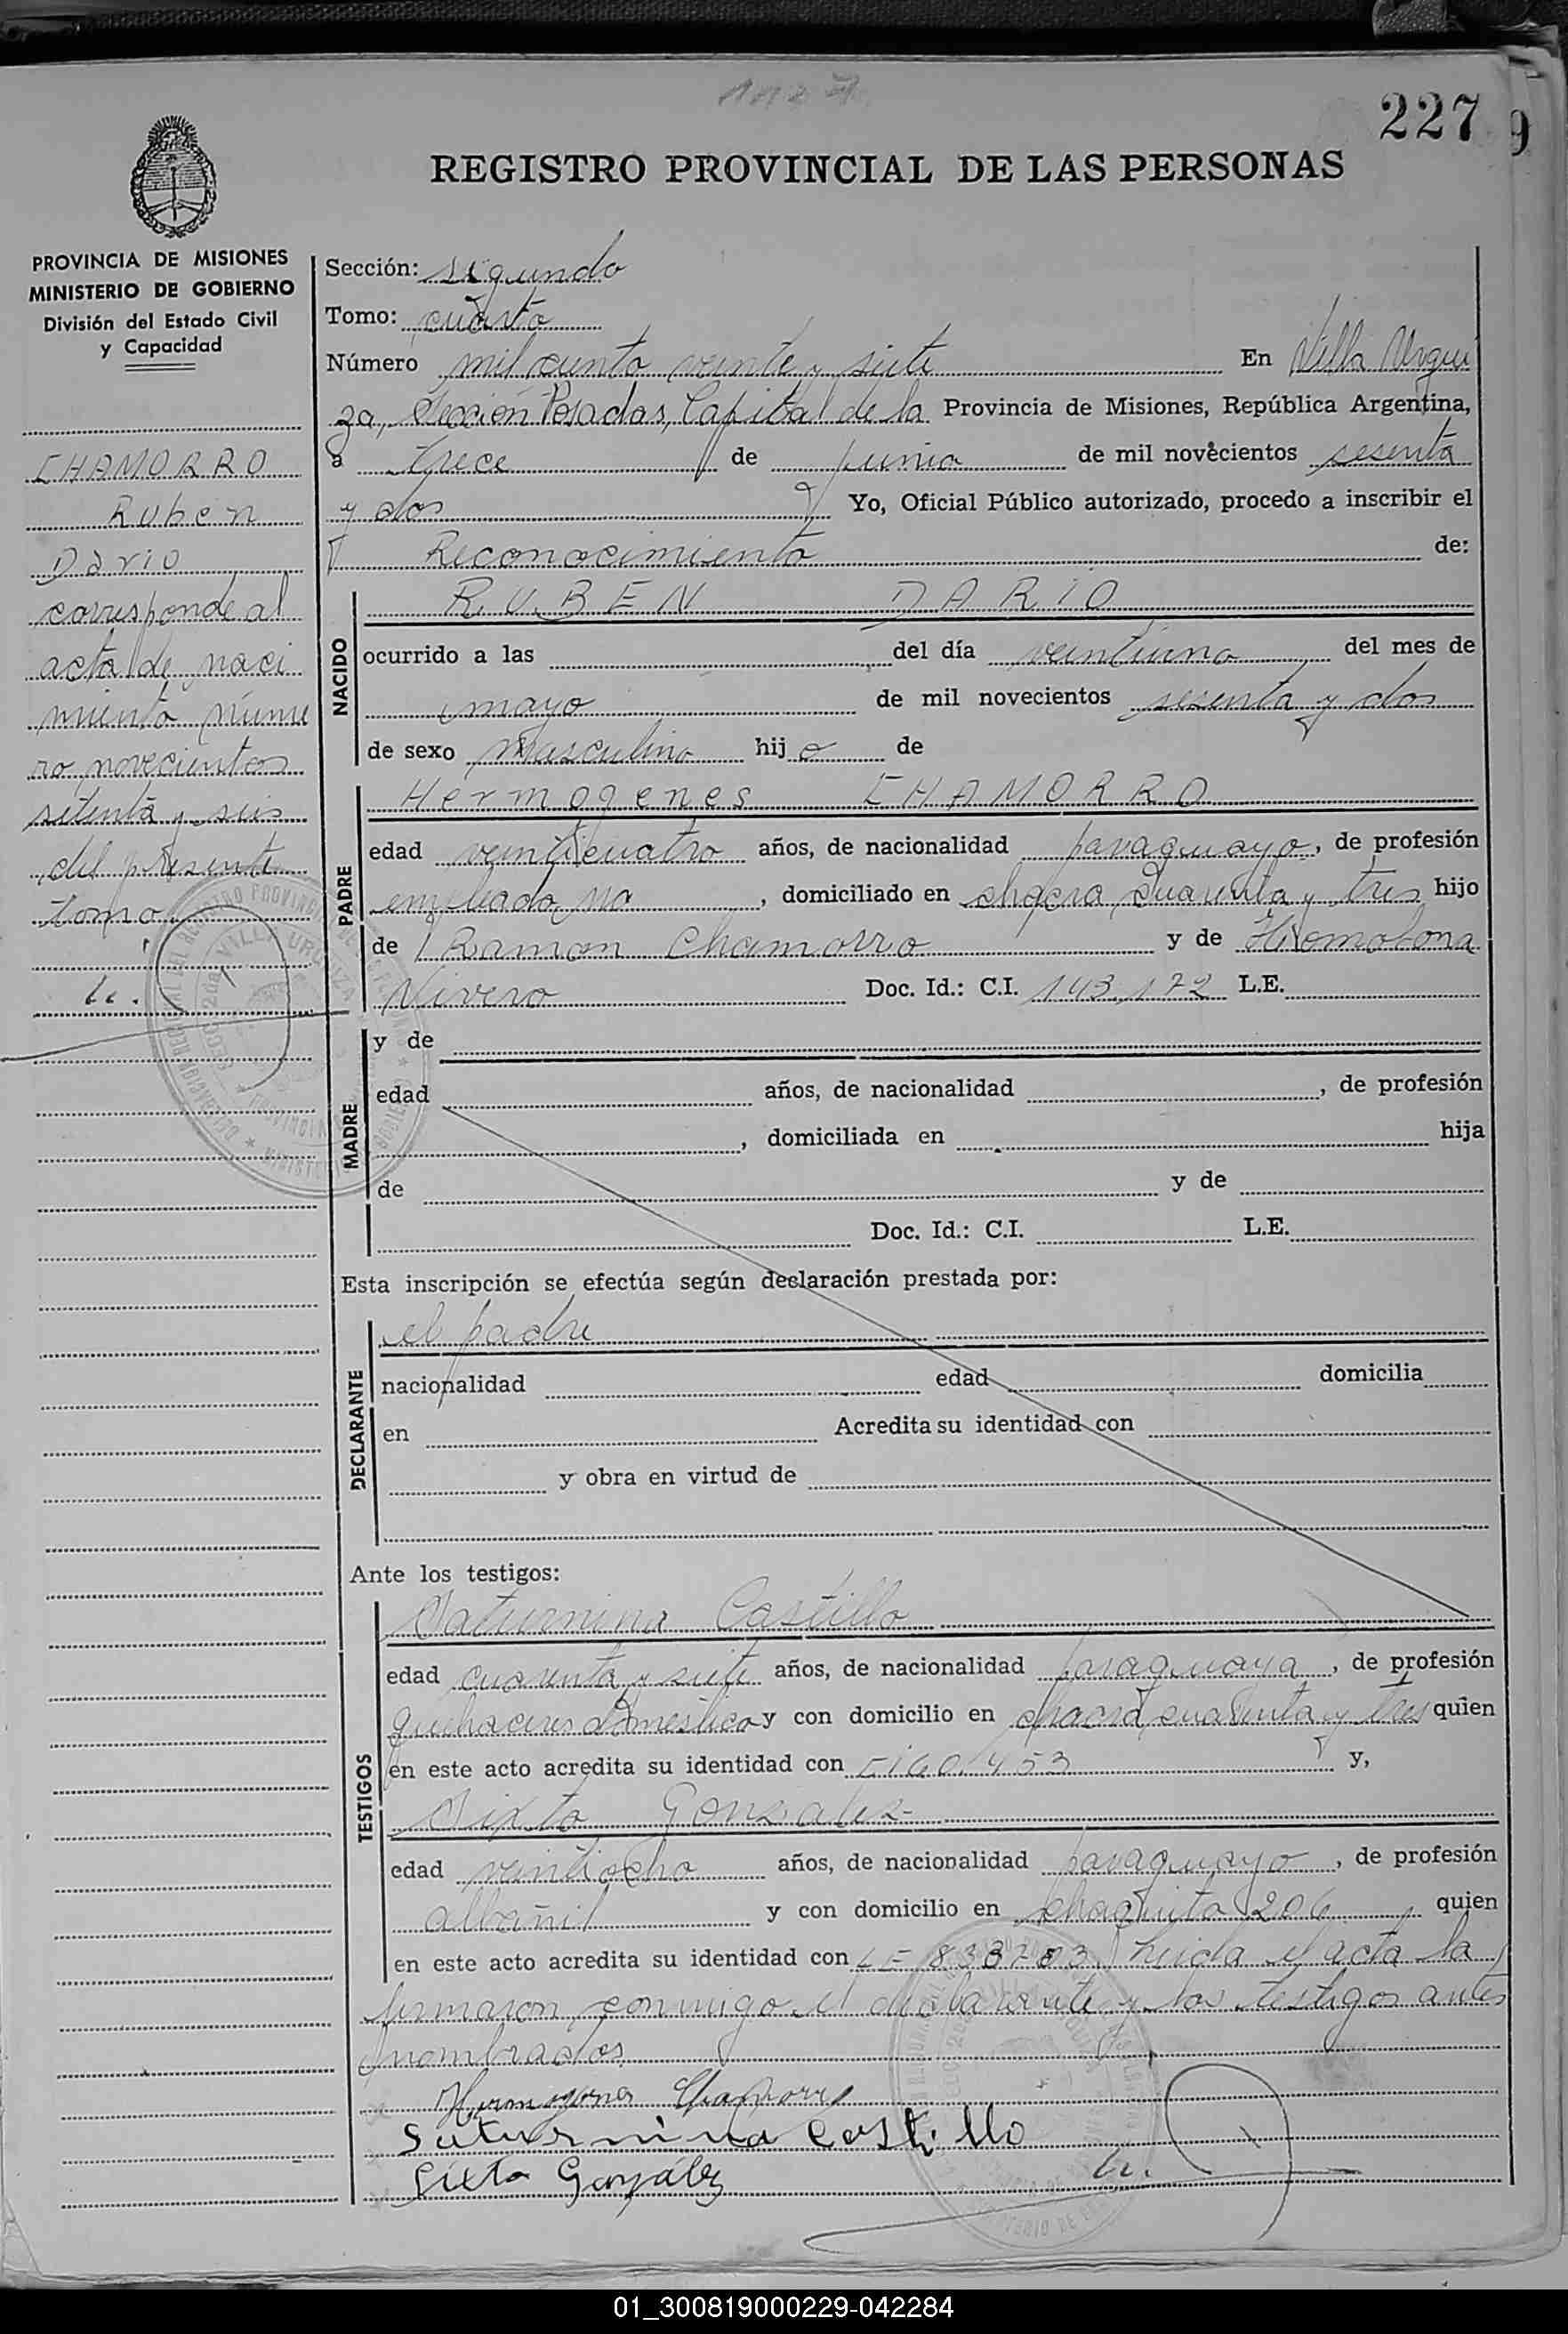 1127
227
9
REGISTRO PROVINCIAL DE LAS PERSONAS
PROVINCIA DE MISIONES
MINISTERIO DE GOBIERNO
División del Estado Civil
y Capacidad
CHAMORRO
Ruben
Dario
corresponde al
acta de naci
miento núme
ro novecientos
setenta y seis
del presente
tomo
Sección: segundo
Tomo: cuarto
Número mil ciento veinte y siete En Villa Urqui
za, Sección Posadas, Capital de la Provincia de Misiones, República Argentina,
a trece de junio de mil novecientos sesenta
y dos Yo, Oficial Público autorizado, procedo a inscribir el
Reconocimiento de:
NACIDO
RUBEN DARIO
ocurrido a las del día veintiuno del mes de
mayo de mil novecientos sesenta y dos
de sexo masculino hijo de
PADRE
Hermogenes CHAMORRO
edad veinticuatro años, de nacionalidad paraguayo, de profesión
empleado, domiciliado en chacra cuarenta y tres hijo
de Ramon Chamorro y de
Nivero Doc. Id.: C.I. 143.172 L.E.
MADRE
y de
edad años, de nacionalidad , de profesión
, domiciliada en hija
de y de
Doc. Id.: C.I. L.E.
Esta inscripción se efectúa según declaración prestada por:
DECLARANTE
el padre
nacionalidad edad domicilia
en Acredita su identidad con
y obra en virtud de
Ante los testigos:
TESTIGOS
Saturnina Castillo
edad cuarenta y siete años, de nacionalidad paraguaya, de profesión
quehaceres domestico y con domicilio en chacra cuarenta y tres quien
en este acto acredita su identidad con y,
Sixto Gonzalez
edad veintiocho años, de nacionalidad paraguayo, de profesión
albañil y con domicilio en chaquita 206 quien
en este acto acredita su identidad con LE 833703 Leida el acta la
firmaron conmigo el declarante y los testigos antes
nombrados
Hermogenes Chamorro
Saturnina Castillo
Sixto González
01_300819000229-042284